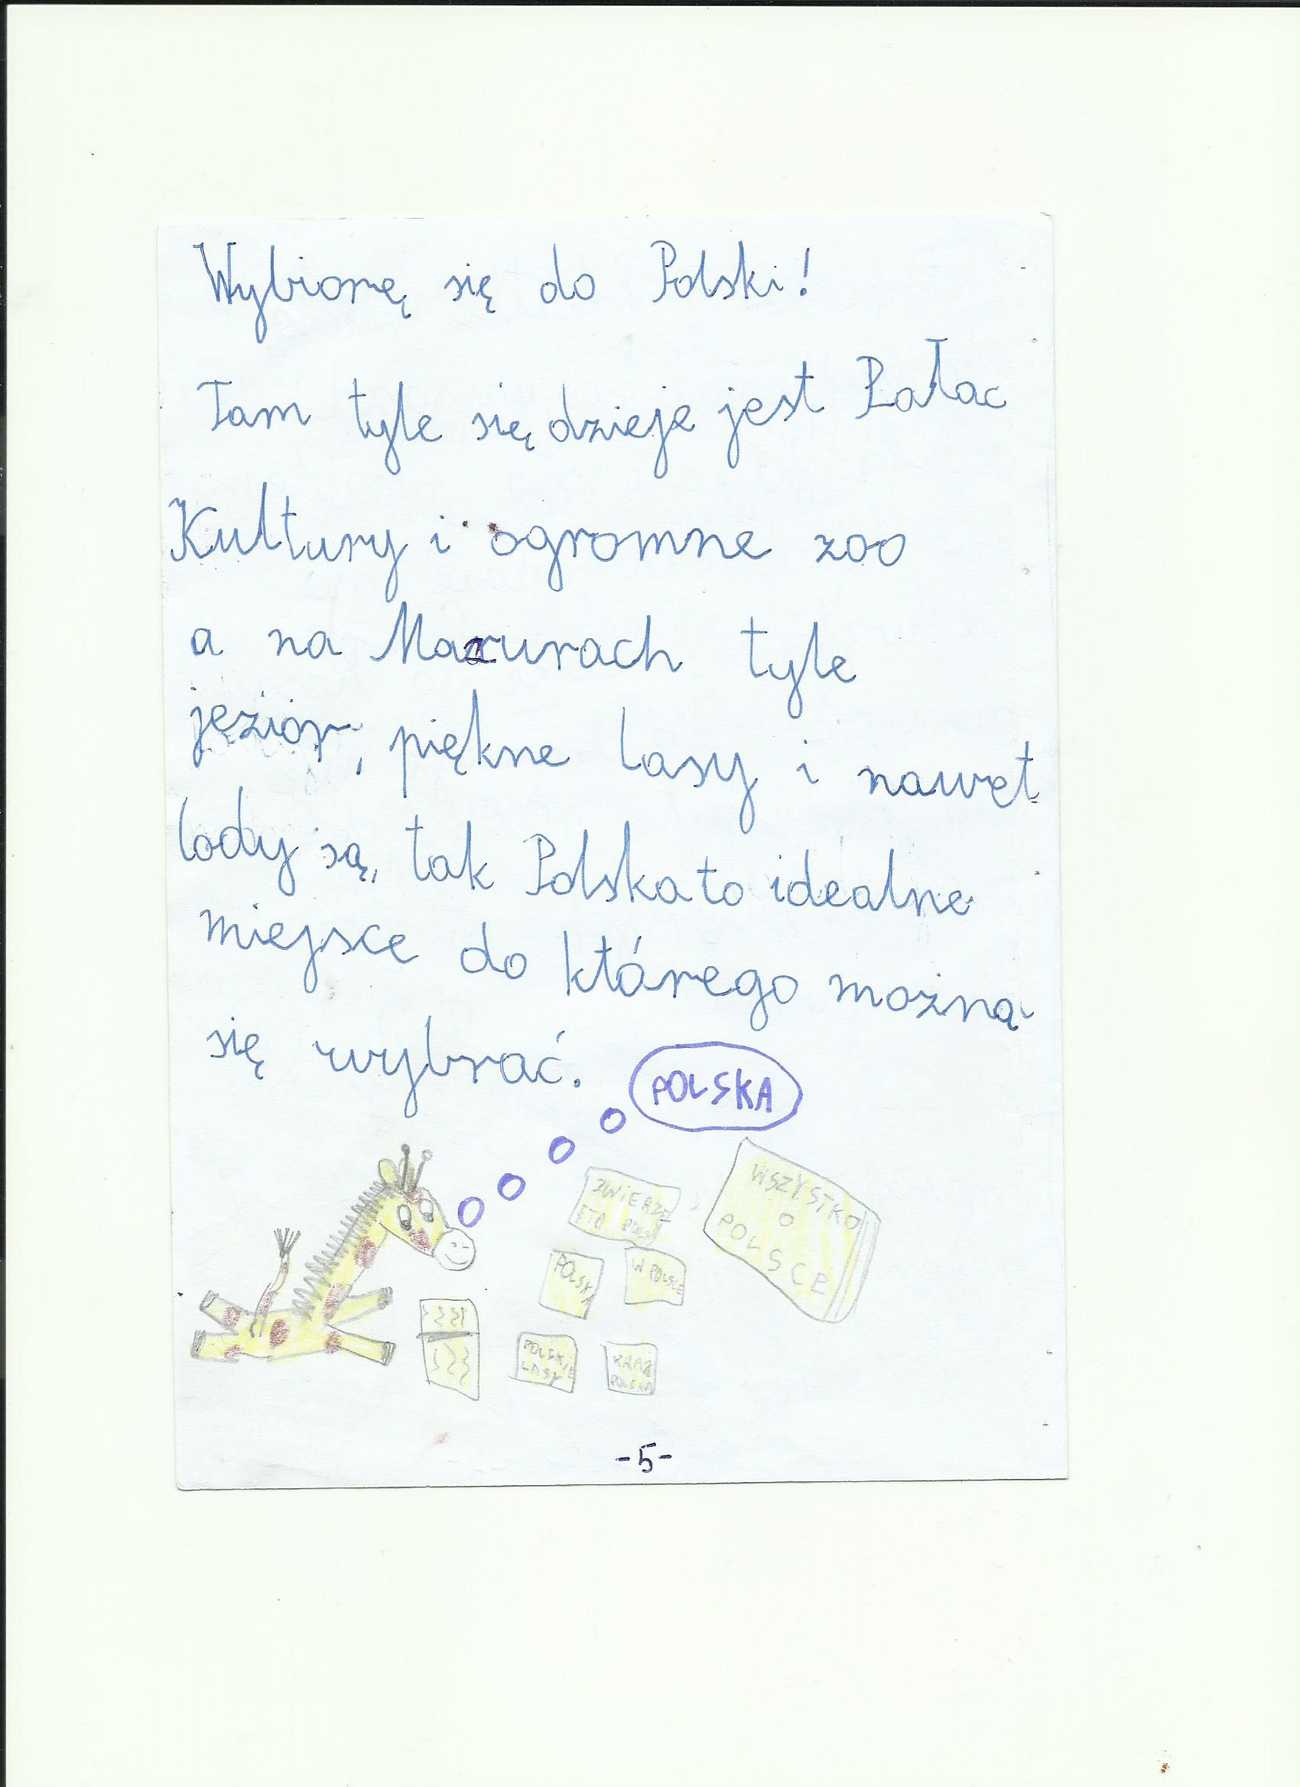 Wybiorę się do Polski!
Tam tyle się dzieje jest Pałac
Kultury i ogromne zoo
a na Mazurach tyle
jezior, piękne lasy i nawet
lody są, tak Polska to idealne
miejsce do którego można
się wybrać.
POLSKA
WSZYSTKO
O
POLSCE
ZWIERZĘ
POLSKA
W POLSCE
POLSKIE
LASY
KRAJ
POLSKA
-5-